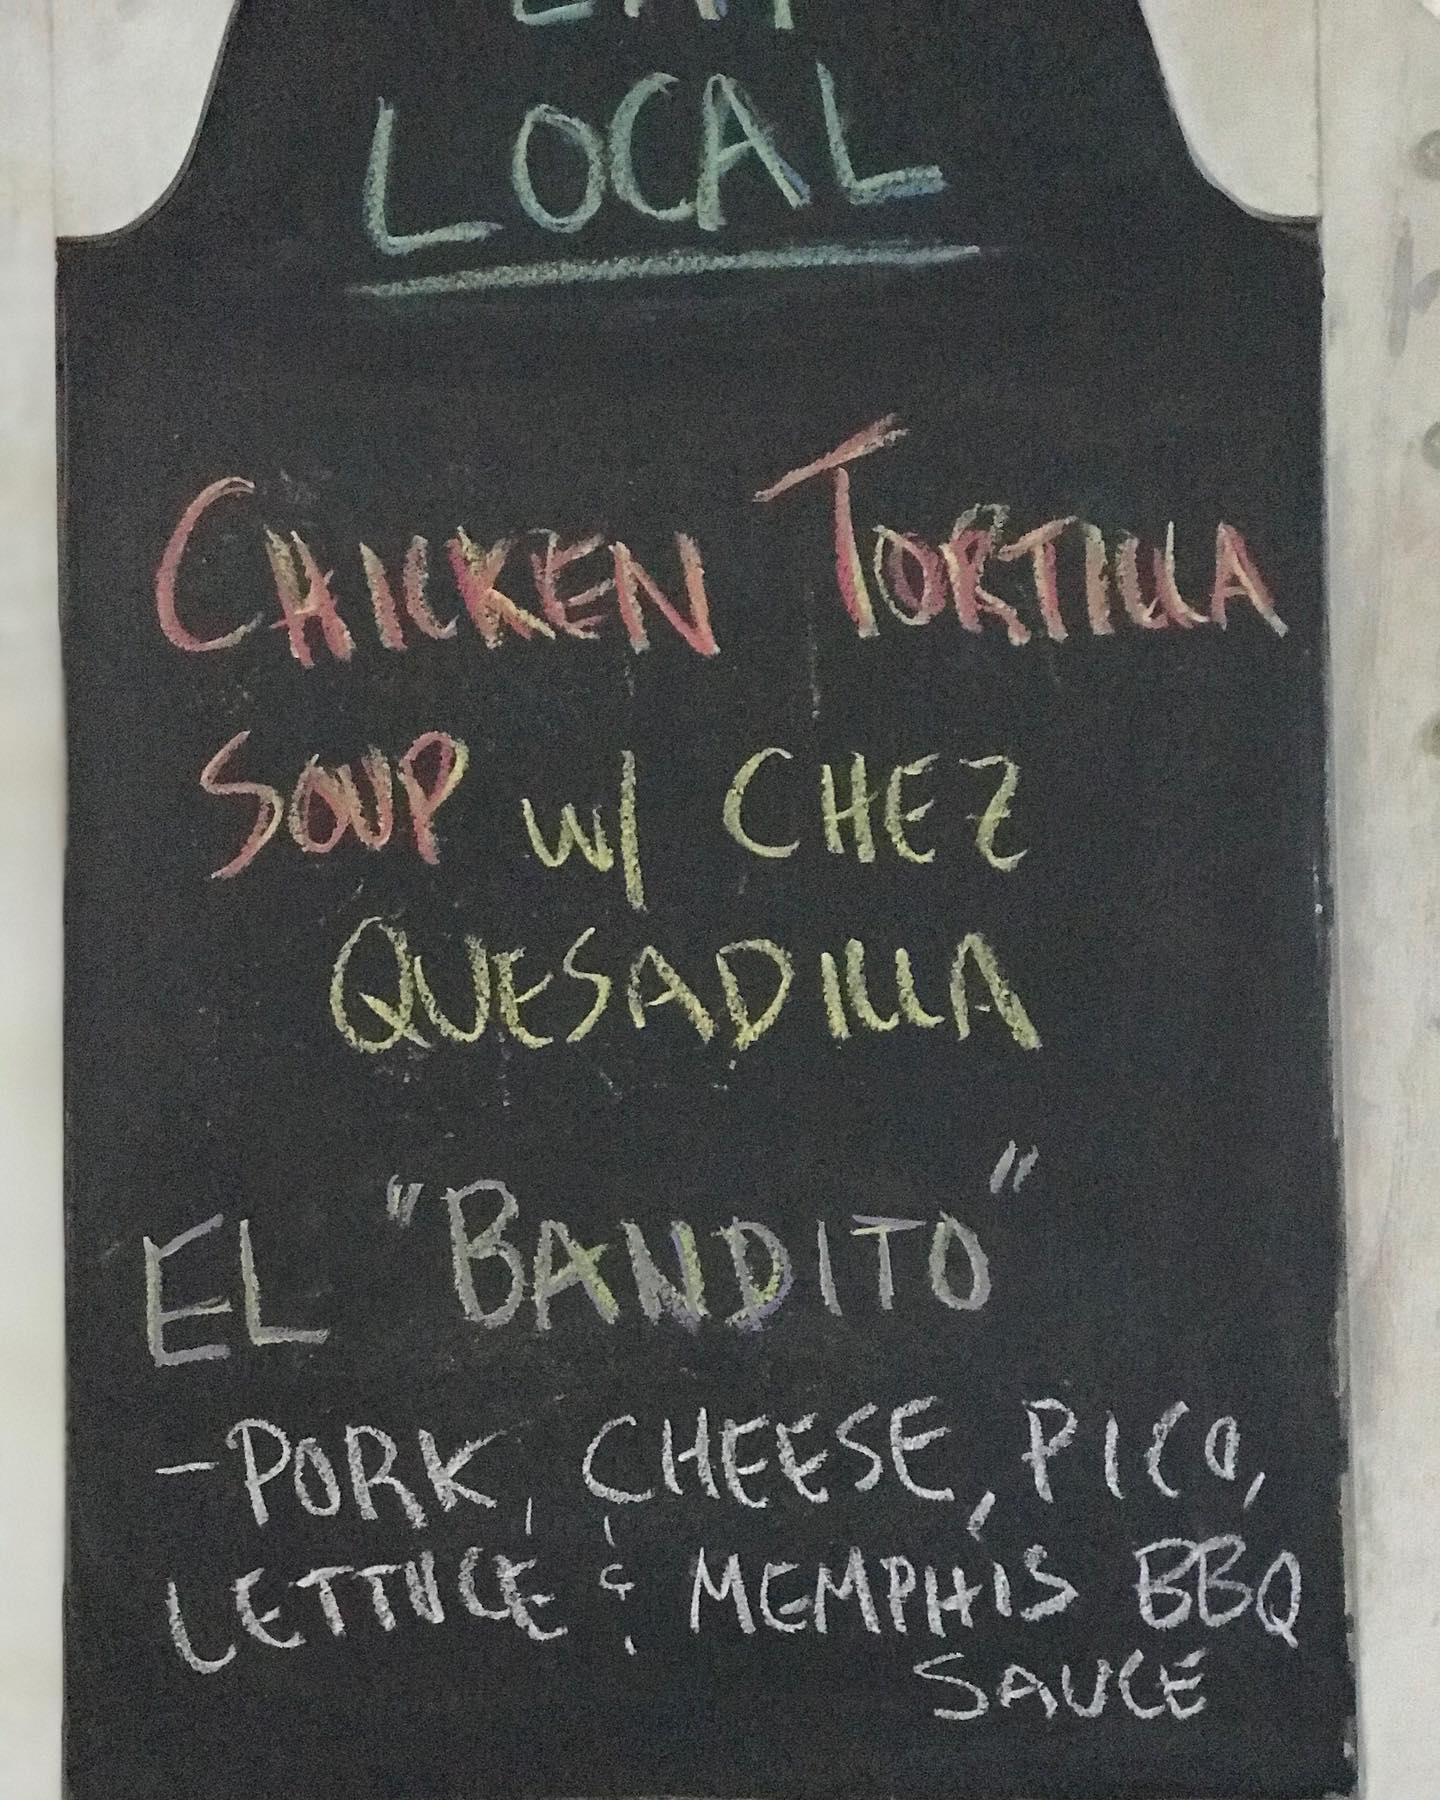 EAT
LOCAL
CHICKEN TORTILLA
SOUP w/ CHEZ
QUESADILLA
EL "BANDITO"
-PORK, CHEESE, PICO,
LETTUCE & MEMPHIS BBQ
SAUCE